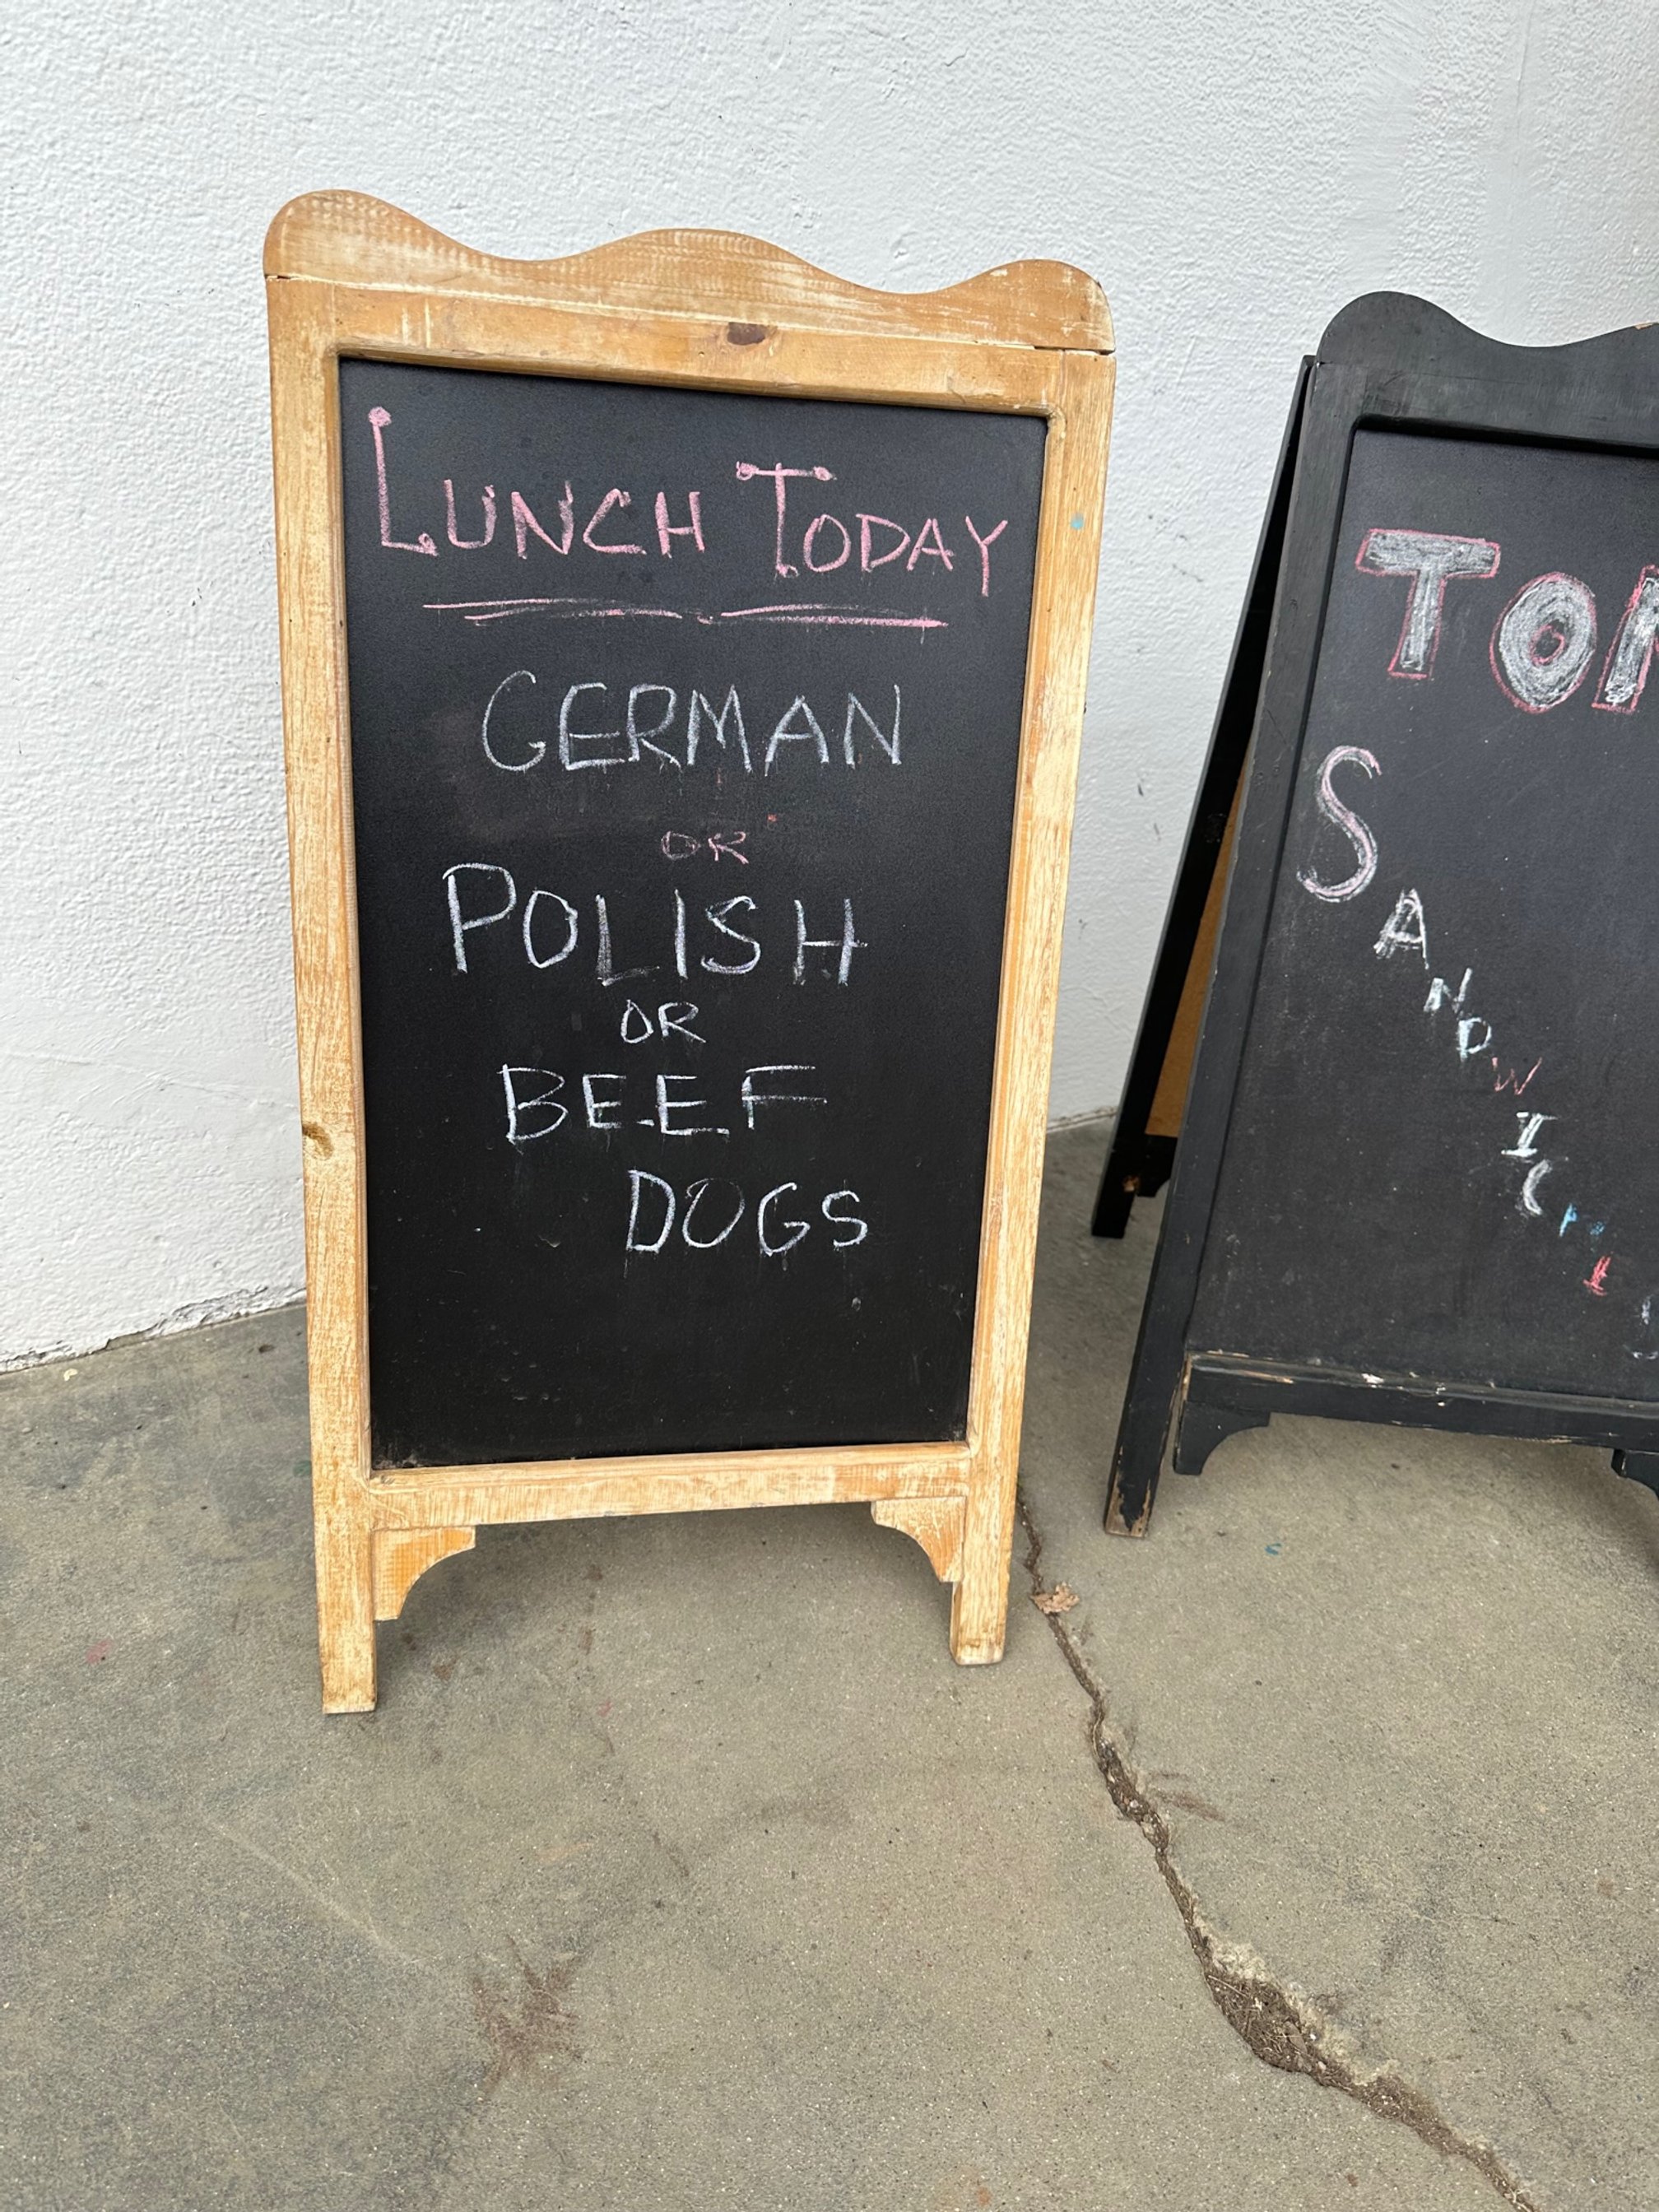 LUNCH TODAY
GERMAN
OR
POLISH
OR
BEEF
DOGS
SANDWICH